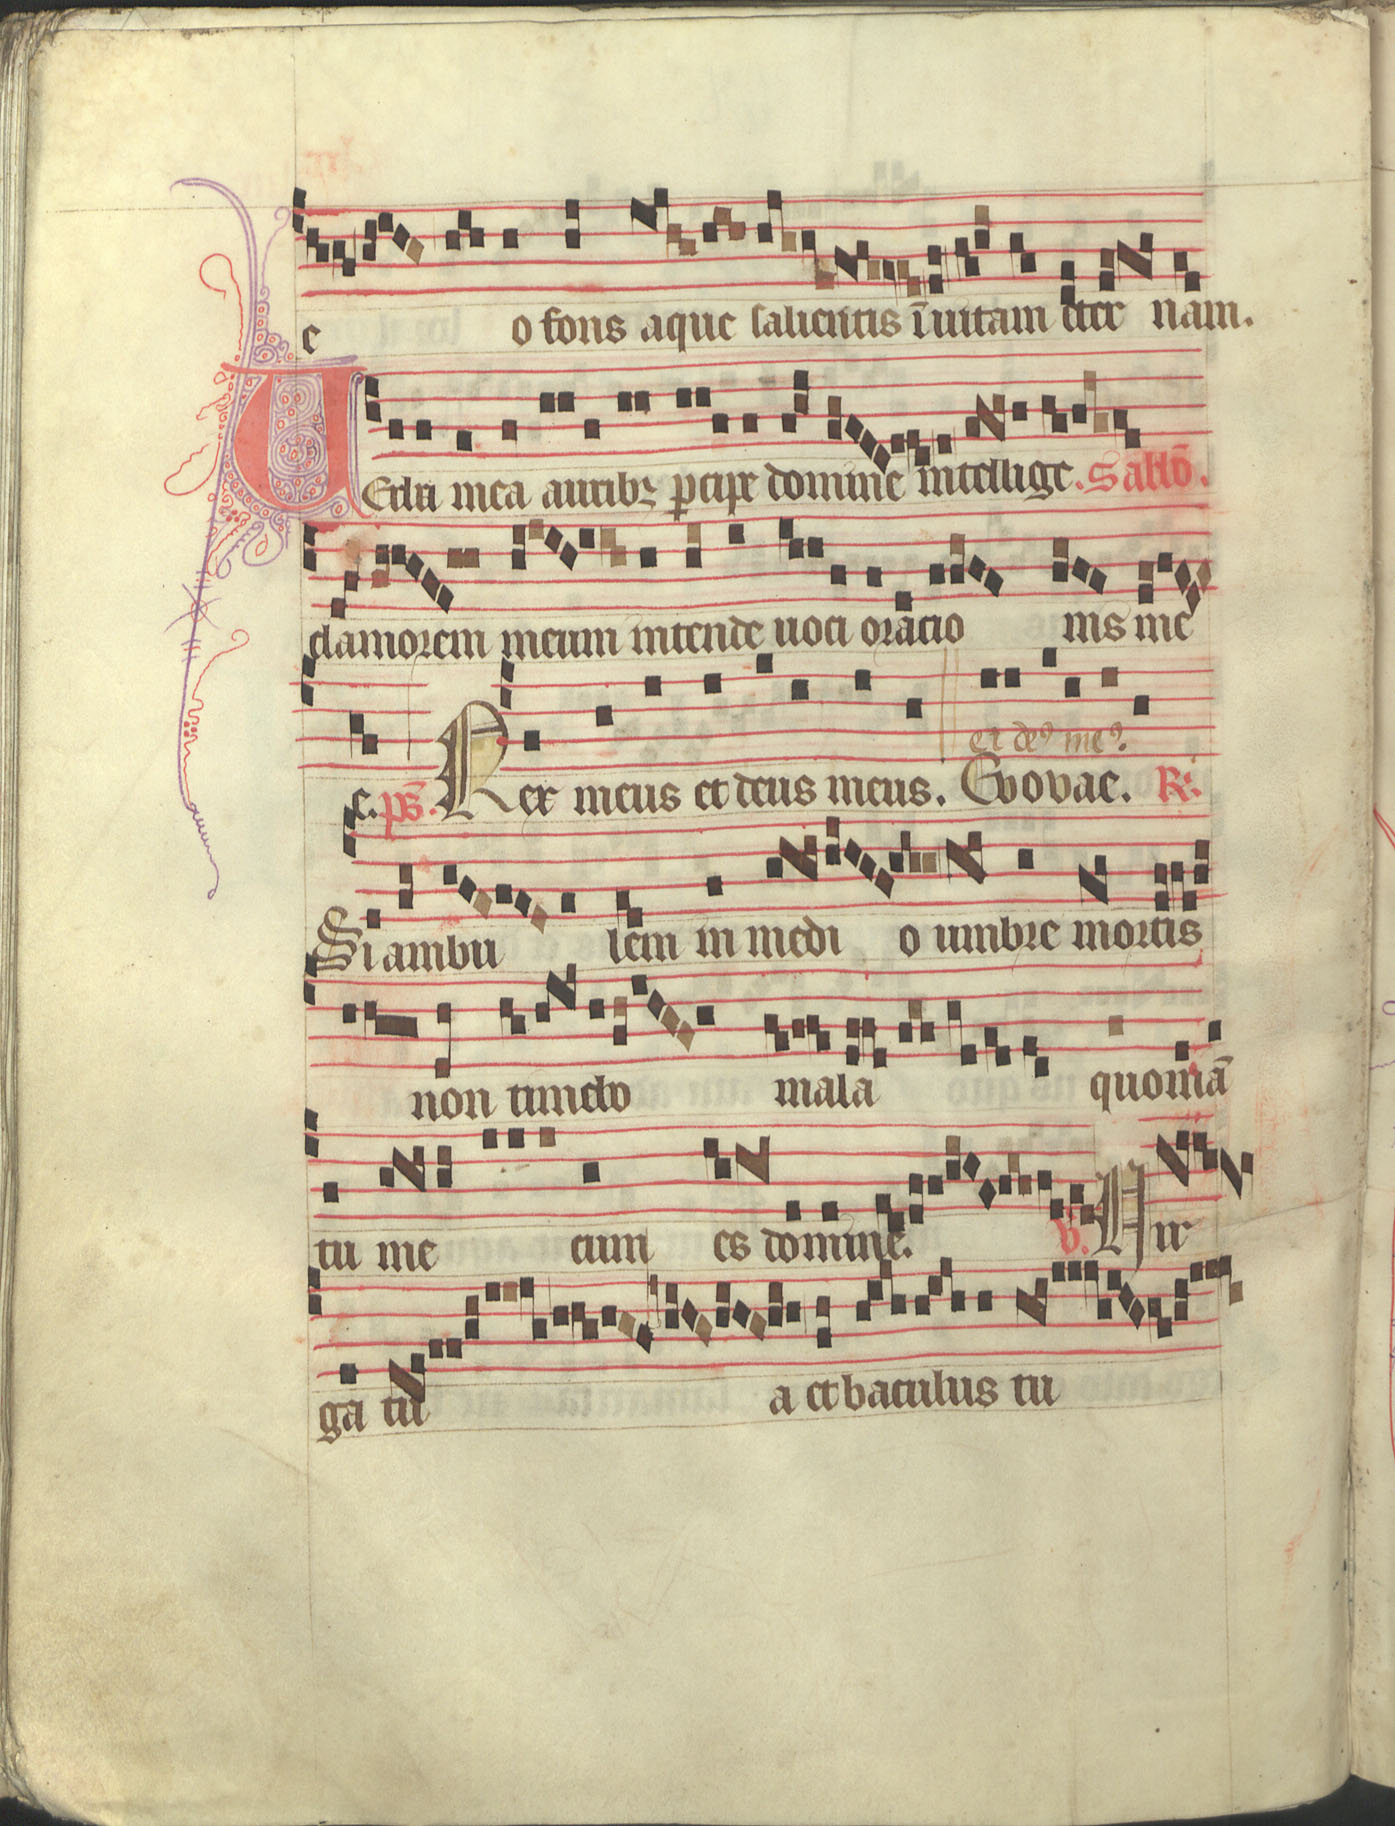 e o fons aque salientis ī uitam eter nam.
Uerba mea auribꝫ ꝑcipe domine intellige. Sabbō.
clamorem meum intende uoci oracio nis me
e. ps. Rex meus et deus meus. Evovae. R.
et deꝰ meꝰ.
Si ambu lem in medi o umbre mortis
non timebo mala quoniā
tu me cum es domine. V. Uir
ga tu a et baculus tu